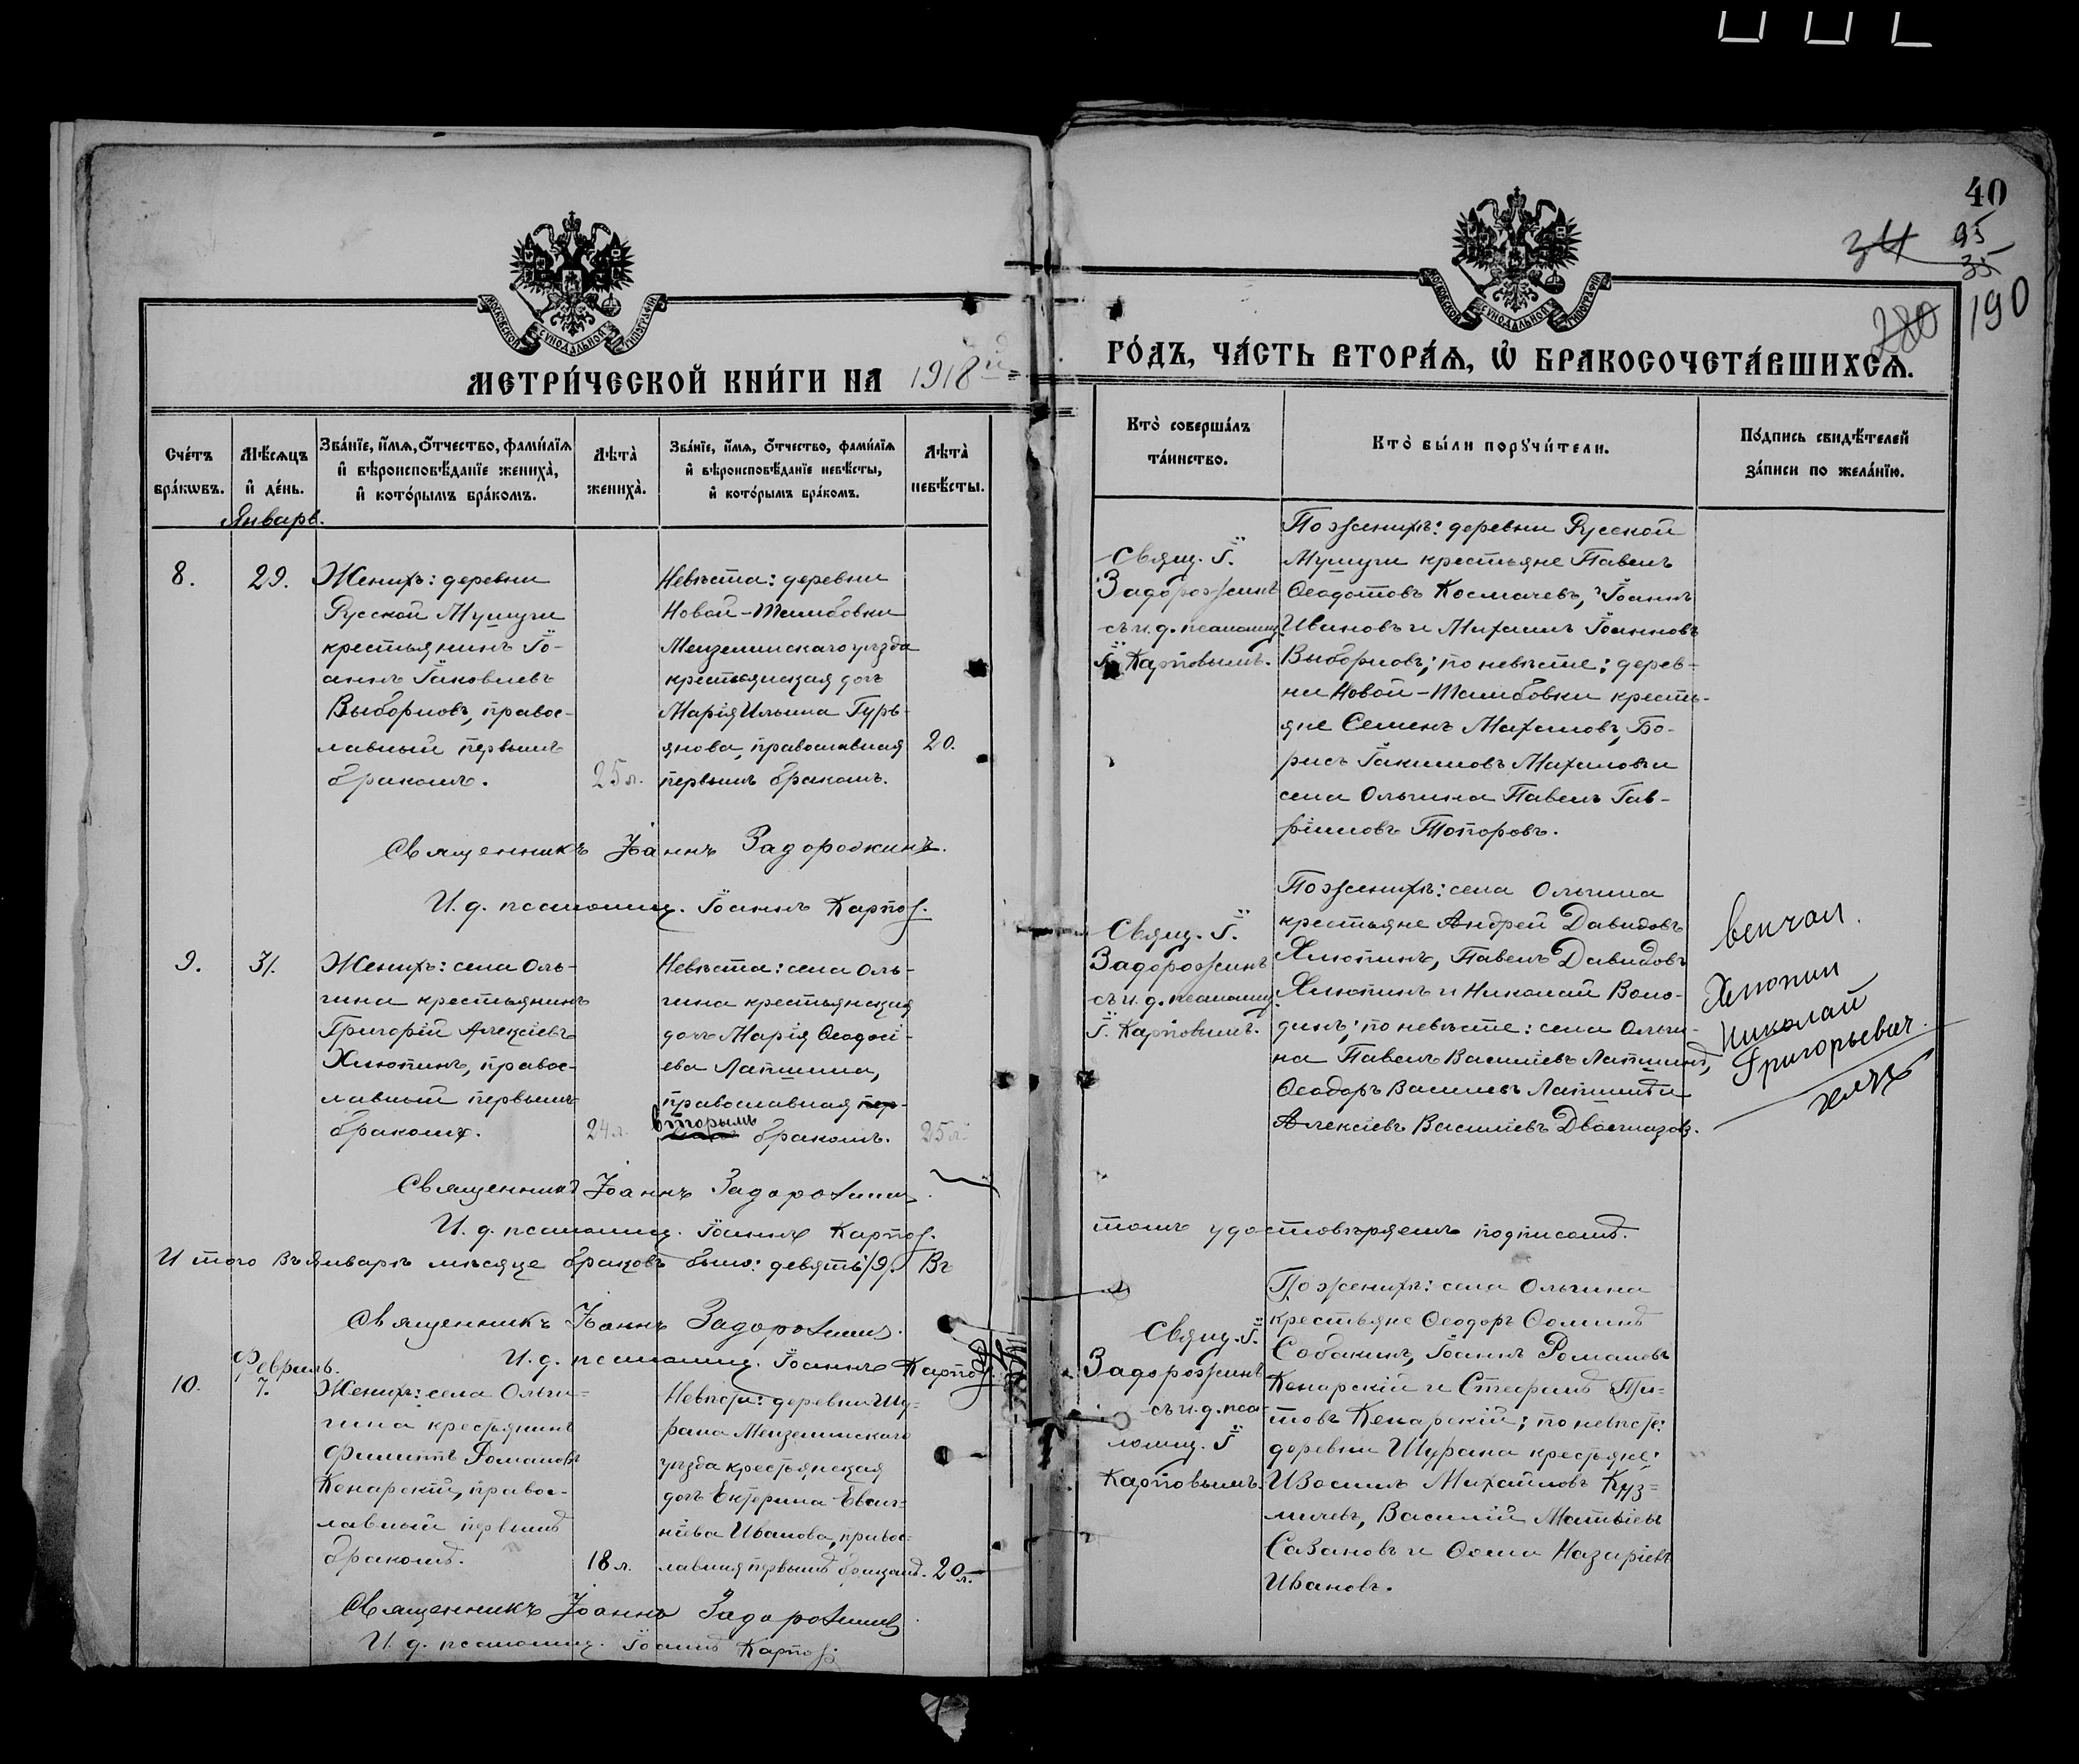 40
34 95
35
280 190
МОСКОВСКОЙ СѴНОДАЛЬНОЙ ТИПОГРАФІИ
МОСКОВСКОЙ СѴНОДАЛЬНОЙ ТИПОГРАФІИ
МЕТРИ́ЧЕСКОЙ КНИ́ГИ НА 1918й
ГО́ДЪ, ЧА́СТЬ ВТОРА́Я, Ѽ БРАКОСОЧЕТА́ВШИХСЯ.
Сче́тъ бра́кѡвъ.
Мѣ́сяцъ и҆ де́нь.
Зва́нїе, и҆́мя, ѻ҆́тчество, фами́лїя и҆ вѣроисповѣ́данїе жениха̀, и҆ кото́рымъ бра́комъ.
Лѣ́та жениха̀.
Зва́нїе, и҆́мя, ѻ҆́тчество, фами́лїя и҆ вѣроисповѣ́данїе невѣ́сты, и҆ кото́рымъ бра́комъ.
Лѣ́та невѣ́сты.
Кто̀ соверша́лъ та́инство.
Кто̀ бы́ли порꙋчи́тели.
По́дпись свидѣ́телей за́писи по жела́нїю.
Январь.
8.
29.
Женихъ: деревни
Русской Мушуги
крестьянинъ Іо-
аннъ Іаковлевъ
Выборновъ, правос-
лавный первымъ
бракомъ.
25 л.
Невѣста: деревни
Новой-Тамбовки
Мензелинскаго уѣзда
крестьянская дочь
Марія Ильина Гурь-
янова, православная
первымъ бракомъ.
20.
Свящ. І.
Задорожинъ
съ и. д. псаломщ.
І. Карповымъ.
По женихѣ: деревни Русской
Мушуги крестьяне Павелъ
Ѳеодотовъ Космачевъ, Іоаннъ
Ивановъ и Михаилъ Іоанновъ
Выборновъ; по невѣсте: дерев-
ни Новой-Тамбовки кресть-
яне Семенъ Бо-
рисъ Іакимовъ
села Ольгина Павелъ Гав-
ріиловъ Топоровъ.
Священникъ Іоаннъ Задорожинъ.
И. д. псаломщ. Іоаннъ Карпов.
9.
31.
Женихъ: села Оль-
гина крестьянинъ
Григорій Алексіевъ
Хлюпинъ, правос-
лавный первымъ
бракомъ.
24 л.
Невѣста: села Оль-
гина крестьянская
дочь Марія Ѳеодосі-
ева Лапшина,
православная пер-
вторымъ бракомъ.
25 л.
Свящ. І.
Задорожинъ
съ и. д. псаломщ.
І. Карповымъ.
По женихѣ: села Ольгина
крестьяне Андрей Давидовъ
Хлюпинъ, Павелъ Давидовъ
Хлюпинъ и Николай Воло-
динъ; по невѣсте: села Ольги-
на Павелъ Василіевъ Лапшинъ,
Ѳеодоръ Василіевъ Лапшинъ и
Алексіевъ Василіевъ
венчал.
Хлюпин
Николай
Григорьевич
Священникъ Іоаннъ Задорожинъ.
И. д. псаломщ. Іоаннъ Карпов.
И того въ Январѣ мѣсяце браковъ было: девять /9/. Въ
томъ удостовѣряемъ подписомъ.
Священникъ Іоаннъ Задорожинъ.
И. д. псаломщ. Іоаннъ Карпов.
Февраль.
10.
7.
Женихъ: села Ольги-
гина крестьянинъ
Филиппъ Романовъ
Кенарскій, правос-
лавный первымъ
бракомъ.
18 л.
Невѣста: деревни Шу-
рана Мензелинскаго
уѣзда крестьянская
дочь Екатерина
Иванова, правос-
лавная первымъ бракомъ.
20 л.
Свящ. І.
Задорожинъ
съ и. д. пса-
ломщ. І.
Карповымъ.
По женихѣ: села Ольгина
крестьяне Ѳеодоръ Ѳоминъ
Собакинъ, Іоаннъ Романовъ
Кенарскій и Стефанъ Ти-
товъ Кенарскій; по невѣсте:
деревни Шурана крестьяне:
Михаиловъ Куз-
мичевъ, Василій Матвіевъ
Сазановъ и Ѳома Назаріевъ
Ивановъ.
Священникъ Іоаннъ Задорожинъ
И. д. псаломщ. Іоаннъ Карпов.